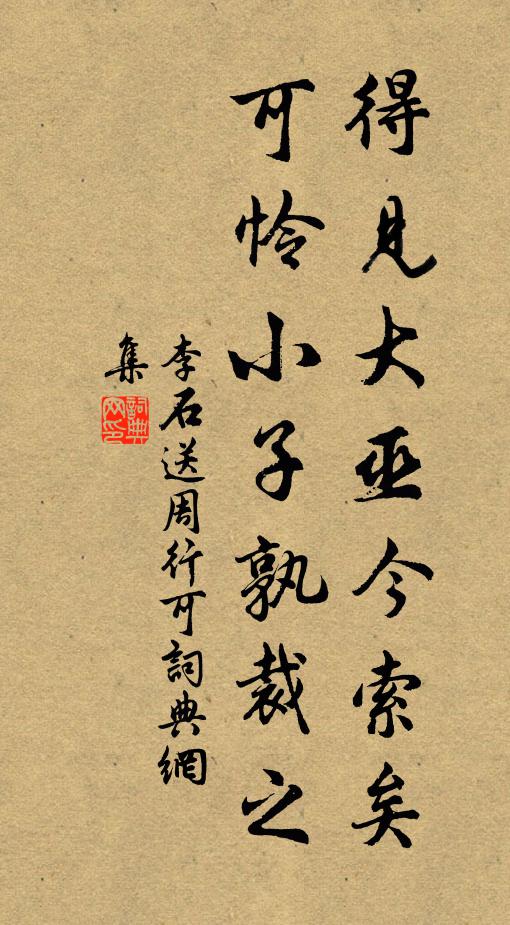 得見大巫今索矣
可怜小子孰裁之
李石送周行可詞典網
集
詞典
网印